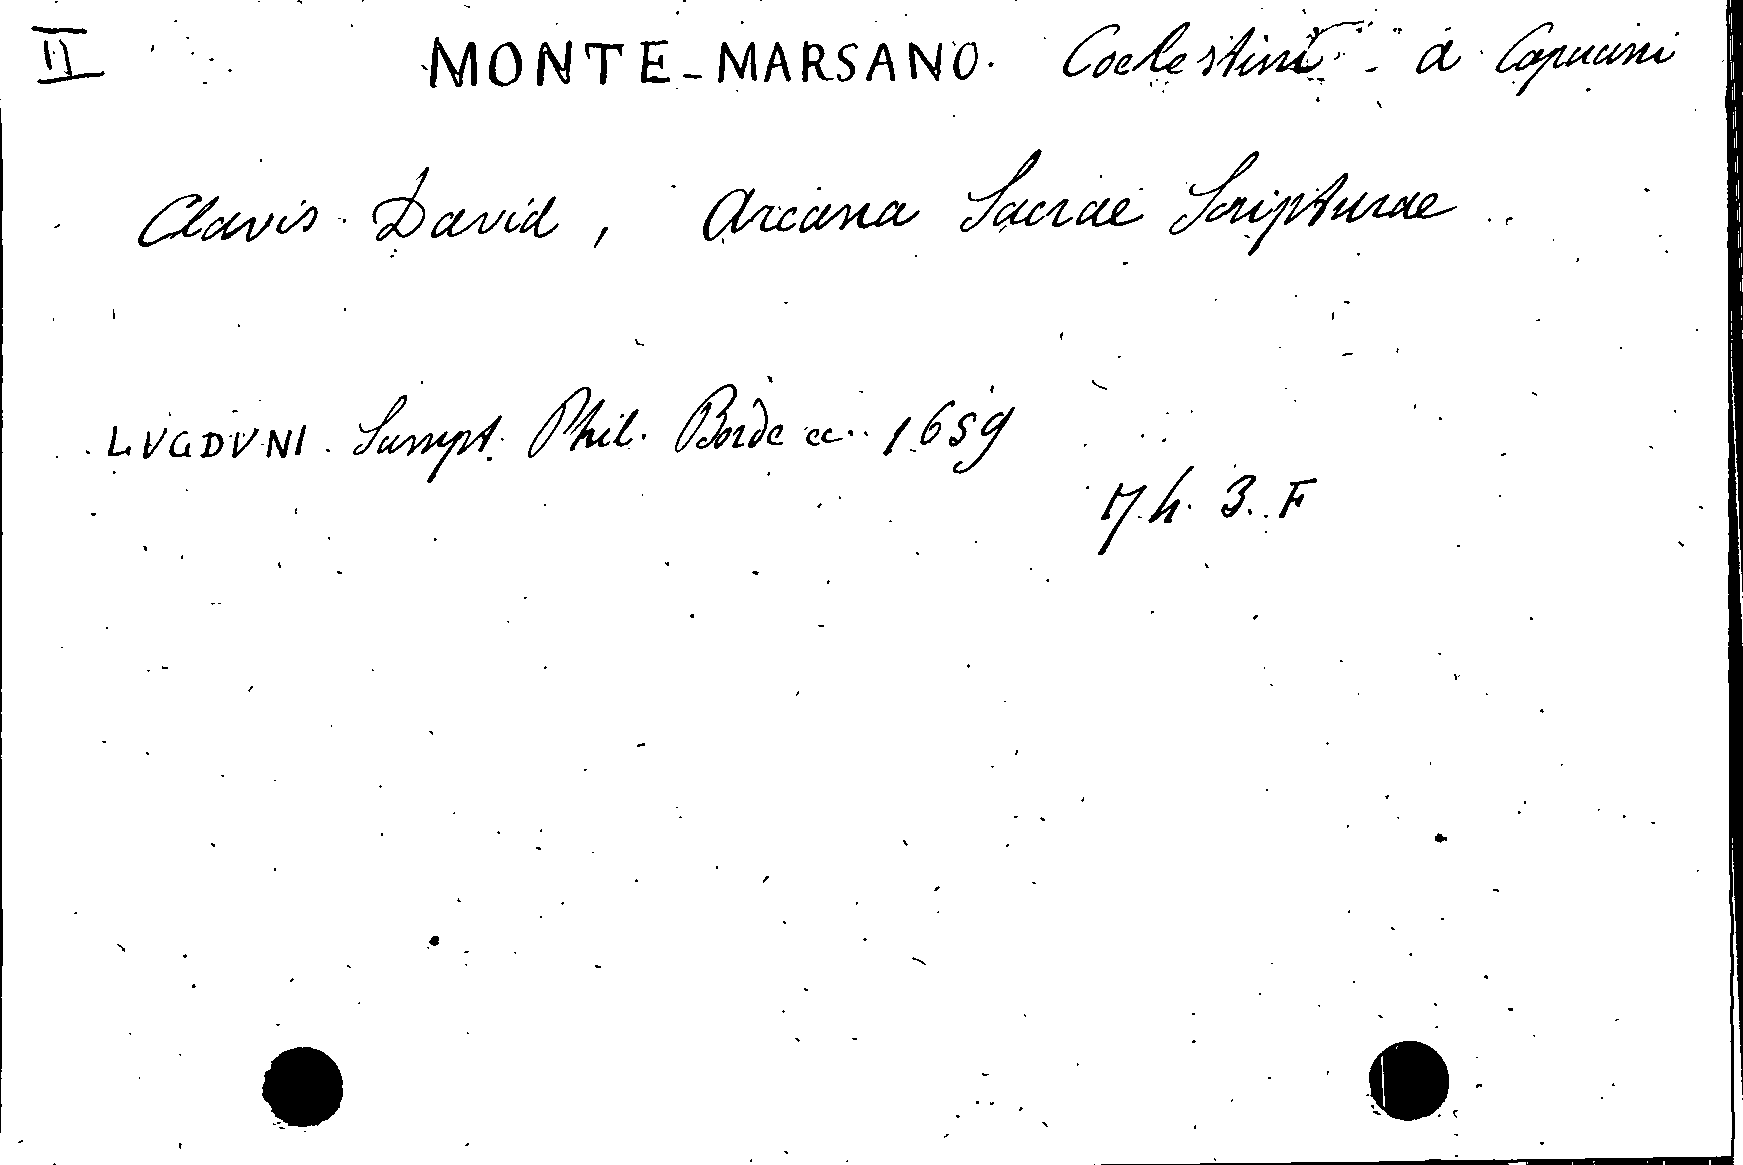 II MONTE-MARSANO. Coelestini a Capucini
Clavis David, Arcana Sacrae Scripturae
LVGDVNI Sumpt. Phil. Borde 1659
17 h. 3. F